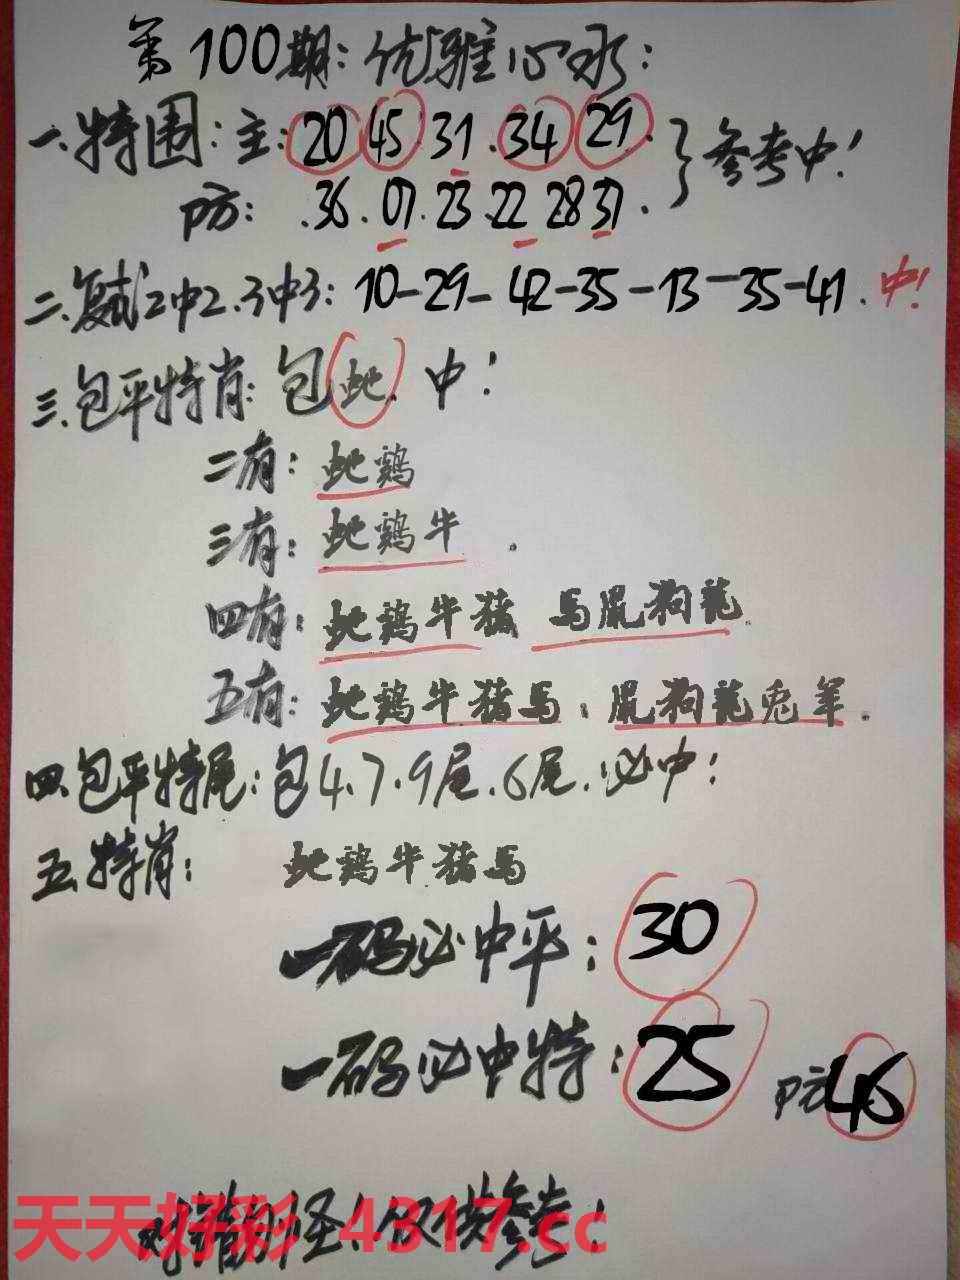 第100期:优雅心水:
一.特围:主:20.45.31.34.29.}参考中!
防:.36.07.23.22 28 37.
二.复试2中2.3中3:10-29-42-35-13-35-41.中!
三.包平特肖:包蛇.中!
二有:蛇鸡
三有:蛇鸡牛.
四有:蛇鸡牛猪 馬鼠狗龍.
五有:蛇鸡牛猪馬:鼠狗龍兔羊.
四.包平特尾:包4.7.9尾.6尾.必中!
五.特肖:蛇鸡牛猪馬
一码必中平:30
一码必中特:25 防46
对错勿怪!仅供参考!
天天好彩 4317.cc